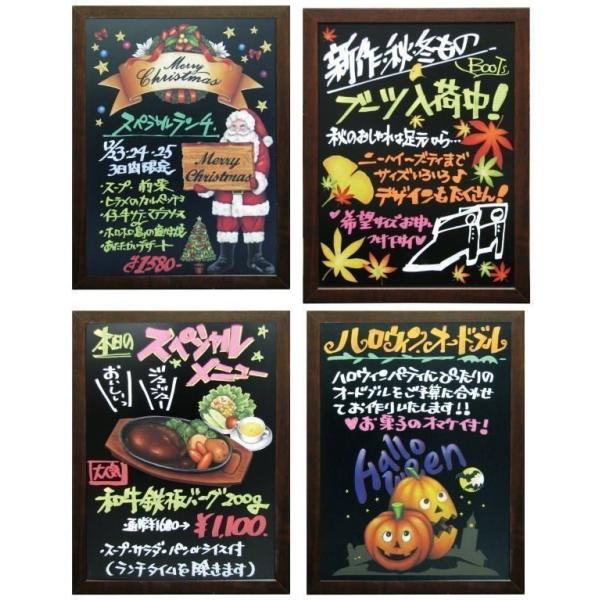 Merry
Christmas
スペシャルランチ
12/23・24・25
3日間限定
Merry
Christmas
・スープ 前菜
・ヒラメのカルパッチョ
・ホロホロ鳥の
・あたたかいデザート
¥1580-
新作・秋・冬もの
Boots
ブーツ入荷中!
秋のおしゃれは足元から…
ニーハイ〜ブーティまで
サイズいろいろ♪
デザインもたくさん!
♥希望サイズお申し
つけ下さい♥
本日の
スペシャル
メニュー
おいしいっ
ジュージュー
大人気
和牛鉄板バーグ200g
通常¥1680→¥1,100.
・スープ・サラダ・パンorライス付
(ランチタイムを除きます)
ハロウィンオードブル
ハロウィンパーティにぴったりの
オードブルをご予算に合わせ
てお作りいたします!!
♥お菓子のオマケ付!
Hallo
ween